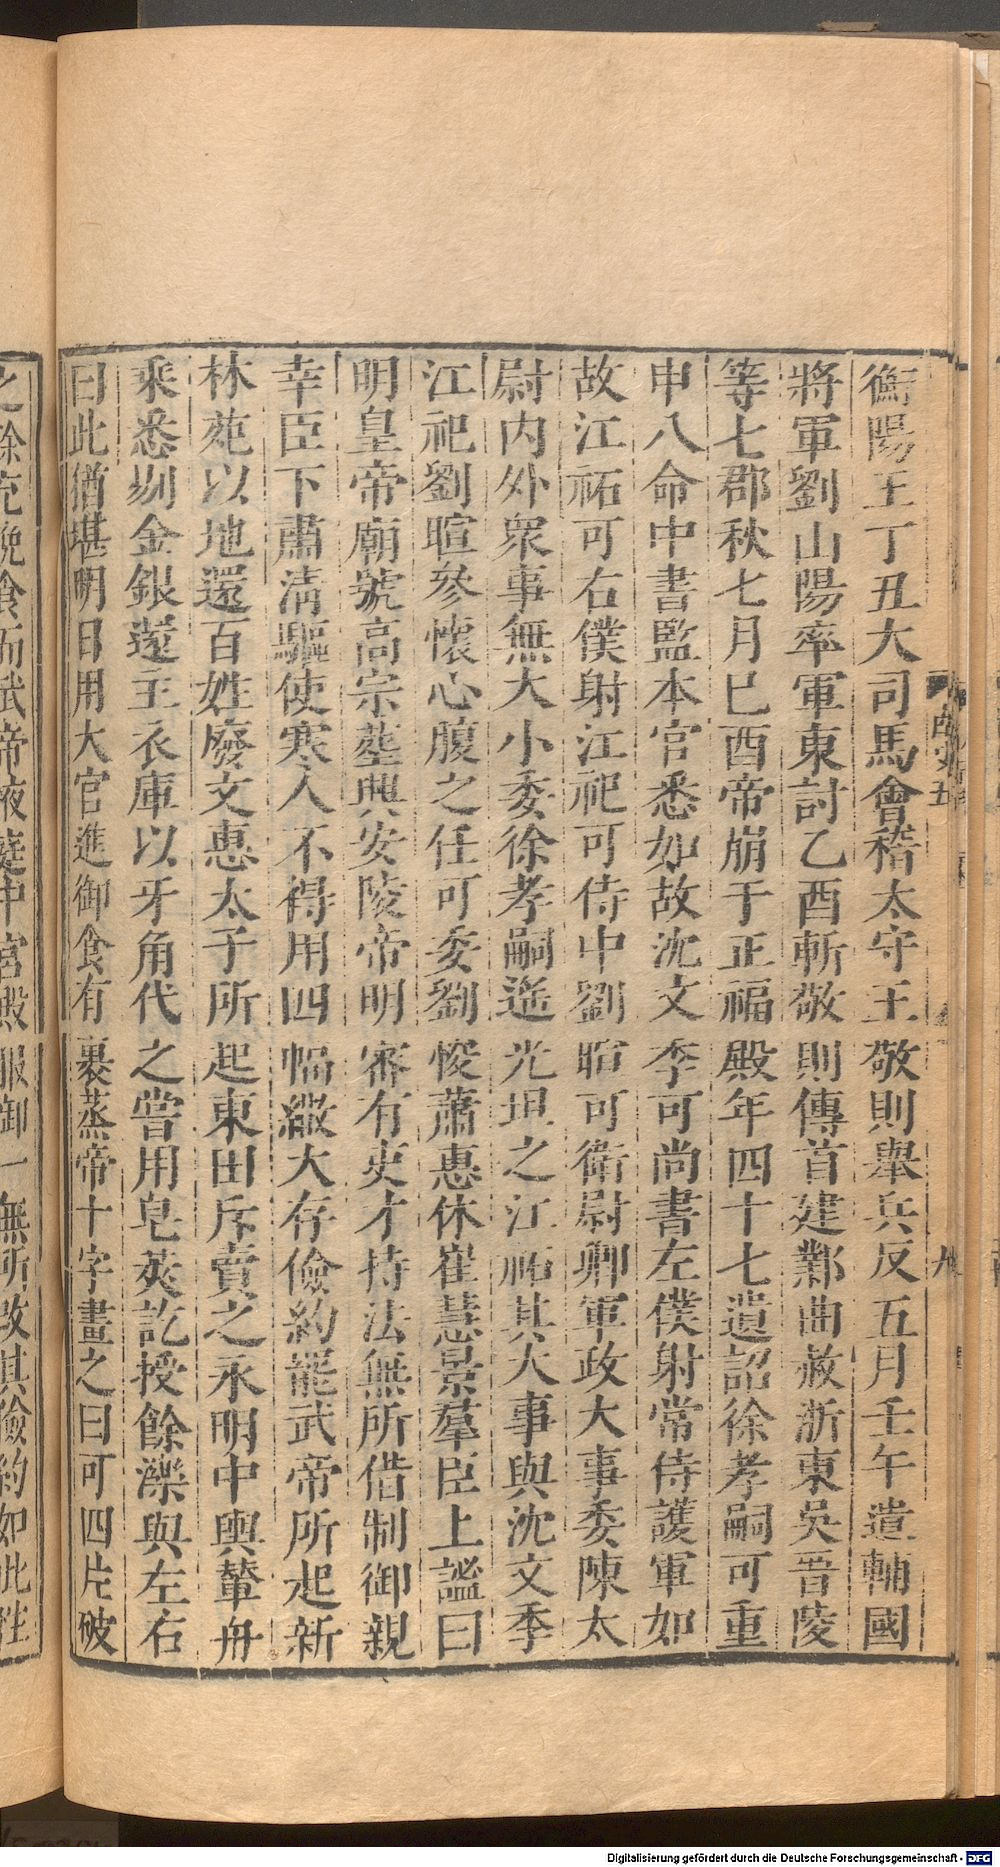 衡陽王丁丑大司馬會稽太守王敬則舉兵反五月壬午遣輔國
將軍劉山陽率軍東討乙酉斬敬則傳首建鄴曲赦浙東吳晉陵
等七郡秋七月已酉帝崩于正福殿年四十七遺詔徐孝嗣可重
申八命中書監本官悉如故沈文季可尚書左僕射常侍護軍如
故江祏可右僕射江祀可侍中劉暄可衛尉卿軍政大事委陳太
尉內外衆事無大小委徐孝嗣遙光坦之江祏其大事與沈文季
江祀劉暄參懷心腹之任可委劉悛蕭惠休崔慧景羣臣上謚曰
明皇帝廟號高宗塟興安陵帝明審有吏才持法無所借制御親
幸臣下肅清驅使寒人不得用四幅繖大存儉約罷武帝所起新
林苑以地還百姓廢文惠太子所起東田斥賣之永明中輿輦舟
乘悉剔金銀還主衣庫以牙角代之嘗用皂莢訖授餘濼與左右
曰此猶堪明日用大官進御食有裹蒸帝十字畫之曰可四片破
之餘充晚食而武帝液庭中宮殿服御一無所改其儉約如此性
九
Digitalisierung gefördert durch die Deutsche Forschungsgemeinschaft - DFG